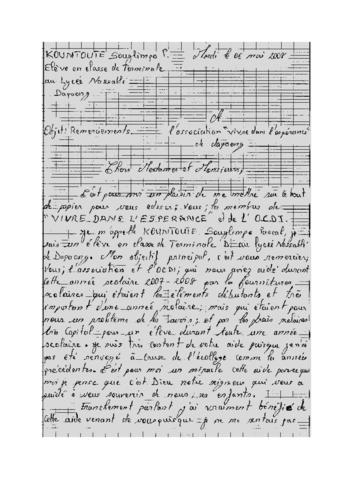 KOUNTOUTE Souglimpo P. Mardi le 06 mai 2008
Elève en classe de Terminale
au Lycée Nassablé
Dapaong
A
Objet: Remerciements l'association "vivre dans l'espérance"
de dapaong
Chers Mesdames et Messieurs,
C'est pour moi un plaisir de me mettre sur ce bout
de papier pour vous adresser; vous; les membres de
"VIVRE DANS L'ESPERANCE" et de l'O.C.D.I.
Je m'appelle KOUNTOUTE Souglimpo Pascal, je
suis un élève en classe de Terminale D au lycée Nassablé
de Dapaong. Mon objectif principal, c'est vous remercier,
vous; l'association et l'OCDI; qui nous avez aidé durant
cette année scolaire 2007-2008 par la fournitures
scolaires qui étaient les éléments débutants et très
important d'une année scolaire; mais qui étaient pour
nous un problème de les avoir; et par les frais scolaires
très Capital pour un élève durant toute une année
scolaire. Je suis très content de votre aide puisque je n'ai
pas été renvoyé à cause de l'écollage comme les années
précédentes. C'est pour moi un miracle cette aide parce que
moi je pense que c'est Dieu notre seigneur qui vous a
guidé à vous souvenir de nous; ses enfants.
Franchement parlant j'ai vraiment bénéficié de
cette aide venant de vous puisque je ne me sentais pas